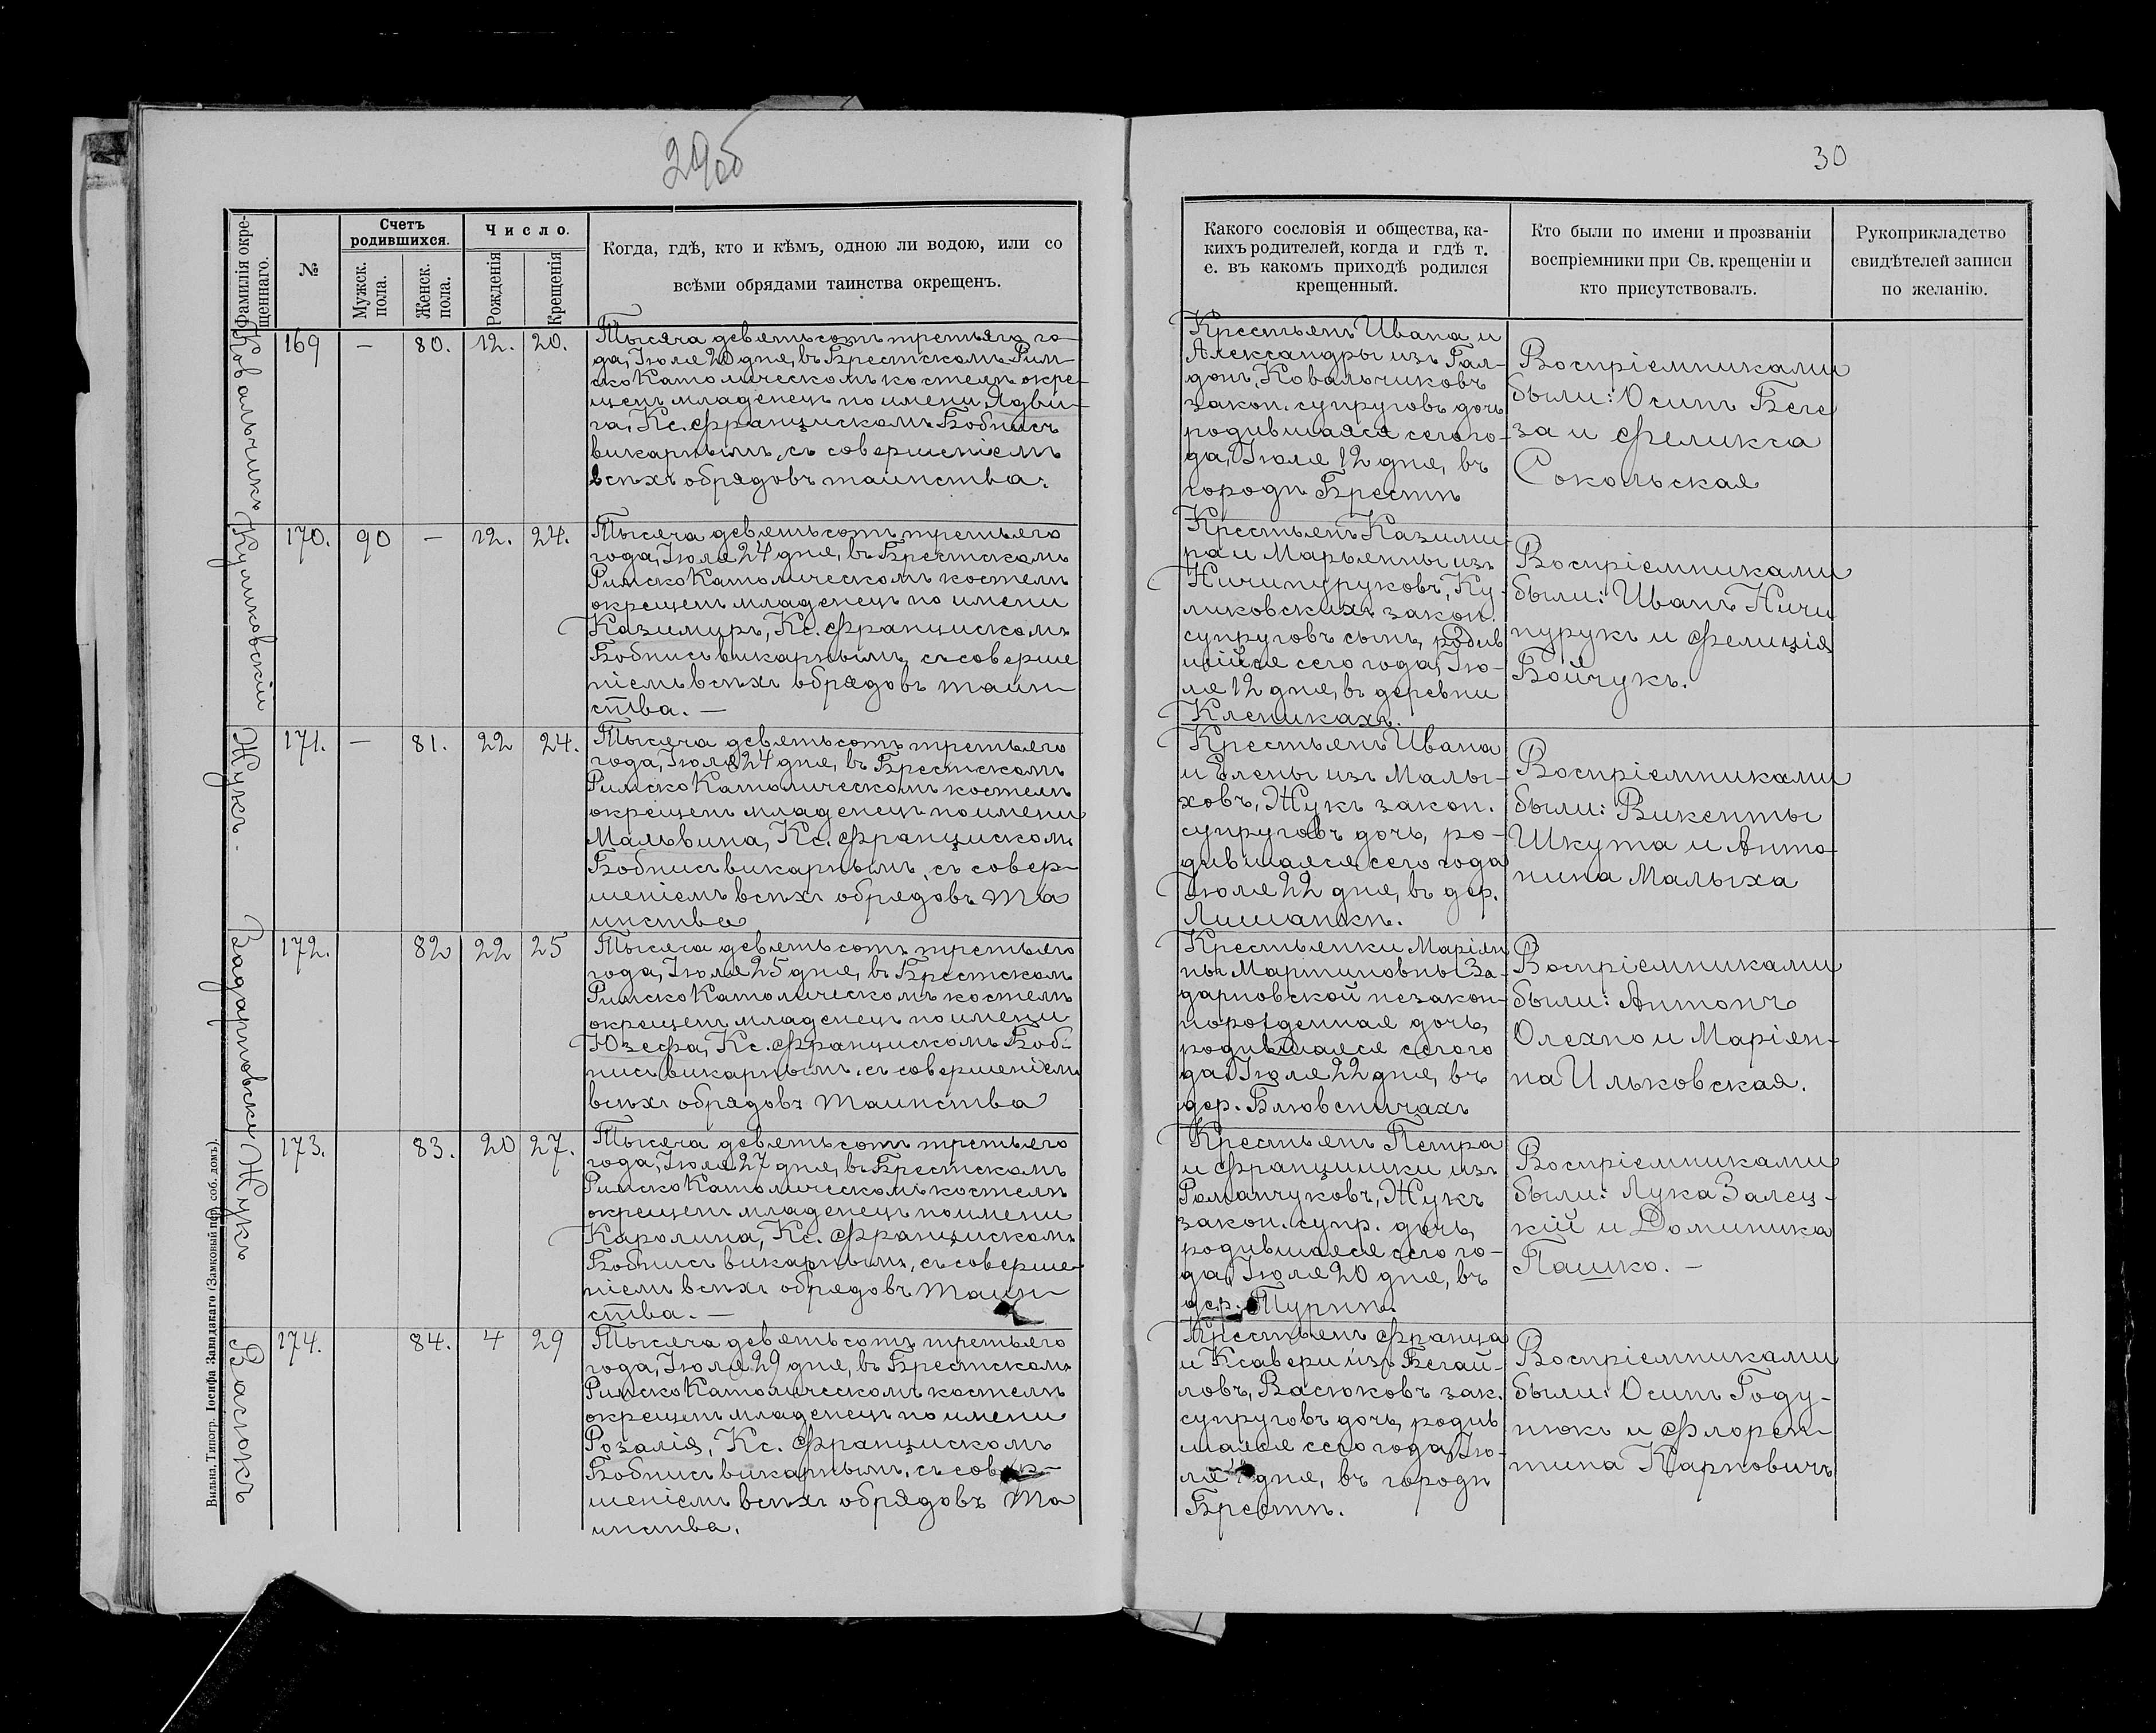 29об
30
Фамилія окре-
щеннаго.
№
Счетъ
родившихся.
Мужск.
пола.
Женск.
пола.
Число.
Рожденія
Крещенія
Когда, гдѣ, кто и кѣмъ, одною ли водою, или со
всѣми обрядами таинства окрещенъ.
Какого сословія и общества, ка-
кихъ родителей, когда и гдѣ т.
е. въ какомъ приходѣ родился
крещенный.
Кто были по имени и прозванію
воспріемники при Св. крещеніи и
кто присутствовалъ.
Рукоприкладство
свидѣтелей записи
по желанію.
Ковальчикъ
169 — 80. 12. 20.
Тысяча девятьсотъ третьяго го-
да, Іюля 20 дня, въ Брестскомъ Рим-
ско Католическомъ костелѣ окре-
щенъ младенецъ по имени Ядви-
га, Кс. Францискомъ Бобнисъ
викарнымъ, съ совершеніемъ
всѣхъ обрядовъ таинства.
Крестьянъ Ивана и
Александры изъ Гал-
донъ, Ковальчиковъ
закон. супруговъ дочь
родившаяся сего го-
да, Іюля 12 дня, въ
городѣ Брестѣ
Воспріемниками
были: Осипъ Беге
за и Феликса
Сокольская
Куликовскій
170. 90 — 12. 24.
Тысяча девятьсотъ третьяго
года, Іюля 24 дня, въ Брестскомъ
Римско Католическомъ костелѣ
окрещенъ младенецъ по имени
Казимиръ, Кс. Францискомъ
Бобнисъ викарнымъ, съ соверше
ніемъ всѣхъ обрядовъ таин
ства. —
Крестьянъ Казими-
ра и Марьянны изъ
Ничипуруковъ, Ку-
ликовскихъ закон.
супруговъ сынъ, родив
шійся сего года, Ію-
ля 12 дня, въ деревни
Клепикахъ.
Воспріемниками
были: Иванъ Ничи
пурукъ и Фелиція
Бойчукъ.
Жукъ.
171. — 81. 22 24.
Тысяча девятьсотъ третьяго
года, Іюля 24 дня, въ Брестскомъ
Римско Католическомъ костелѣ
окрещенъ младенецъ по имени
Мальвина, Кс. Францискомъ
Бобнисъ викарнымъ, съ совер-
шеніемъ всѣхъ обрядовъ та
инства
Крестьянъ Ивана
и Елены изъ Малы-
ховъ, Жукъ закон.
супруговъ дочь, ро-
дившаяся сего года
Іюля 22 дня, въ дер.
Лишанкѣ.
Воспріемниками
были: Викенты
Шкута и Анто-
нина Малыха
Задарновски
172. 82 22 25
Тысяча девятьсотъ третьяго
года, Іюля 25 дня, въ Брестскомъ
Римско Католическомъ костелѣ
окрещенъ младенецъ по имени
Юзефа, Кс. Францискомъ Боб-
нисъ викарнымъ, съ совершеніемъ
всѣхъ обрядовъ таинства
Крестьянки Маріян
ны Мартиновны За-
дарновской незакон-
норожденная дочь,
родившаяся сего го
да, Іюля 22 дня, въ
дер. Блювсничахъ
Воспріемниками
были: Антонъ
Олехно и Маріян-
на Ильковская.
Жукъ
173. 83. 20 27.
Тысяча девятьсотъ третьяго
года, Іюля 27 дня, въ Брестскомъ
Римско Католическомъ костелѣ
окрещенъ младенецъ по имени
Каролина, Кс. Францискомъ
Бобнисъ викарнымъ, съ соверше
ніемъ всѣхъ обрядовъ таин
ства. —
Крестьянъ Петра
и Францишки изъ
Романчуковъ, Жукъ
закон. супр. дочь,
родившаяся сего го-
да, Іюля 20 дня, въ
дер. Турнѣ.
Воспріемниками
были: Лука Залец-
кій и Доминика
Пашко. —
Васюкъ
174. 84. 4 29
Тысяча девятьсотъ третьяго
года, Іюля 29 дня, въ Брестскомъ
Римско Католическомъ костелѣ
окрещенъ младенецъ по имени
Розалія, Кс. Францискомъ
Бобнисъ викарнымъ, съ совер-
шеніемъ всѣхъ обрядовъ та
инства.
Крестьянъ Франца
и Ксавери изъ Бегай-
ловъ, Васюковъ зак.
супруговъ дочь, родив
шаяся сего года, Ію-
ля 4 дня, въ городѣ
Брестѣ.
Воспріемниками
были: Осипъ Году-
нюкъ и Флорен
тина Карповичъ
Вильна, Типогр. Іосифа Завадзкаго (Замковый пер. соб. домъ).